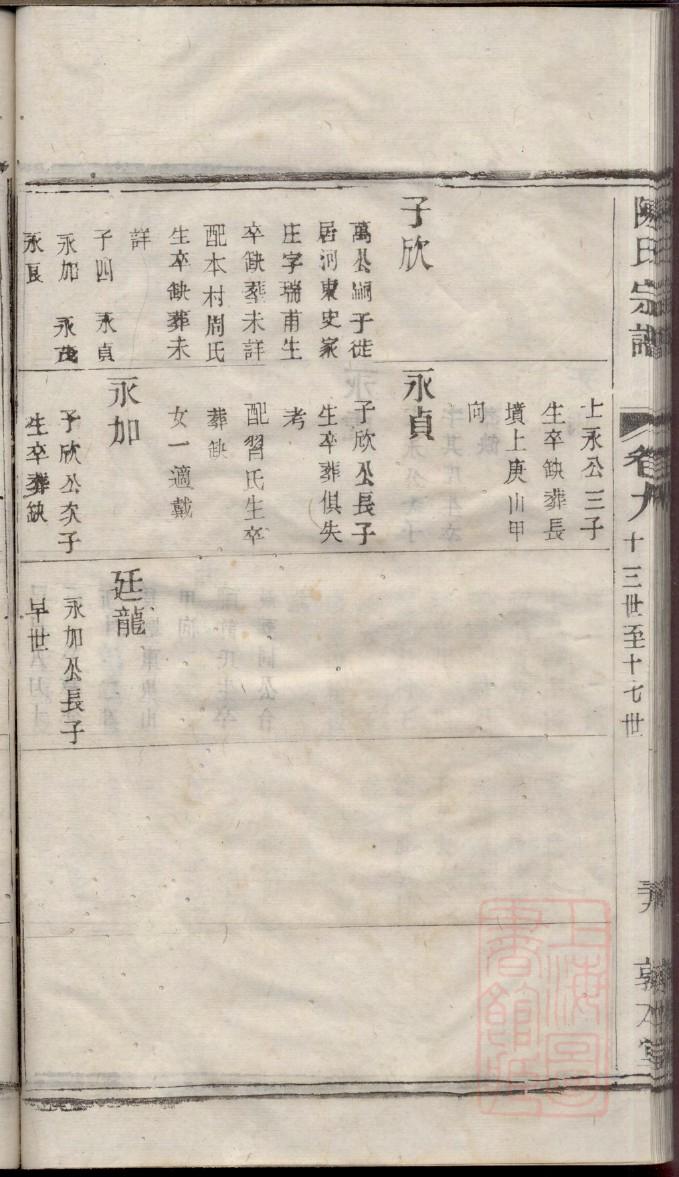 陳氏宗譜
卷九
十三世至十七世
子欣
萬公嗣子徙
居河東史家
庄字瑞甫生
卒缺葬未詳
配本村周氏
生卒缺葬未
詳
子四 永貞
永加 永茂
永長
士永公三子
生卒缺葬長
墳上庚山甲
向
永貞
子欣公長子
生卒葬俱失
考
配習氏生卒
葬缺
女一適戴
永加
子欣公次子
生卒葬缺
廷龍
永加公長子
早世
上海圖
書館臧